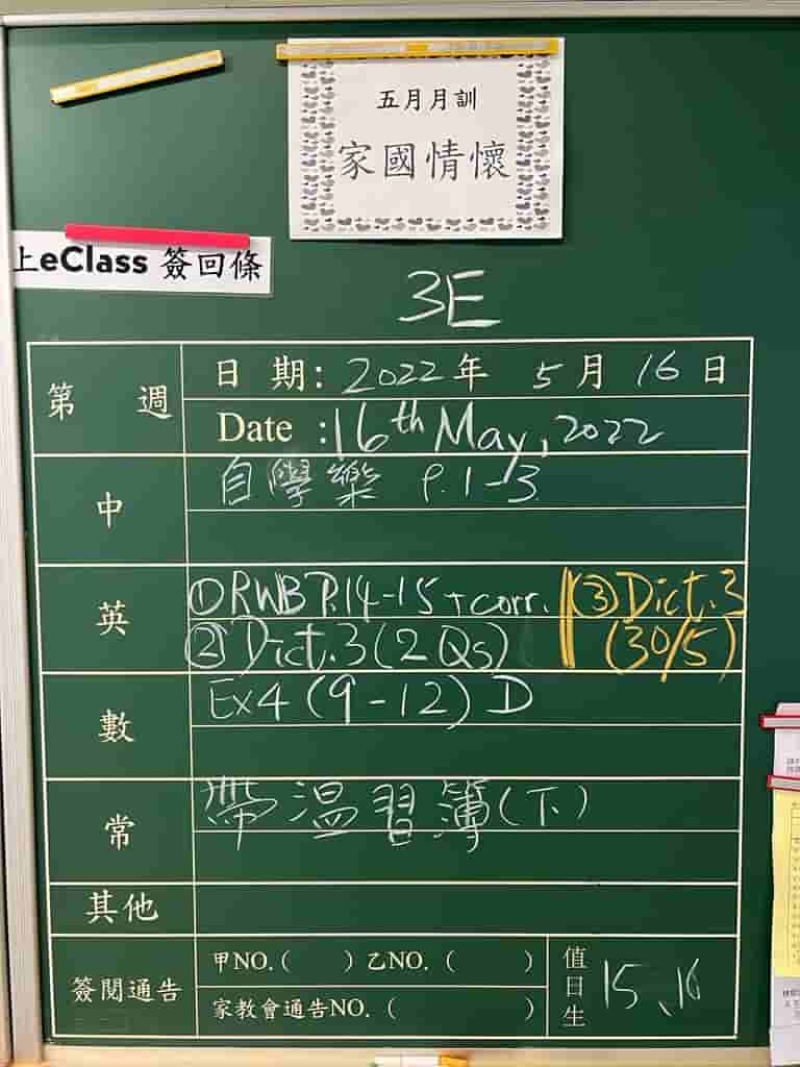 五月月訓
家國情懷
上eClass 簽回條
3E
第 週
日 期: 2022年 5月 16日
Date : 16th May, 2022
中
自學樂 P.1-3
英
①RWB P.14-15 + corr. ③Dict.3
②Dict.3 (2 Qs) (30/5)
數
Ex4 (9-12) D
常
帶溫習簿(下)
其他
簽閱通告
甲NO.( ) 乙NO.( )
家教會通告NO.( )
值日生
15、16